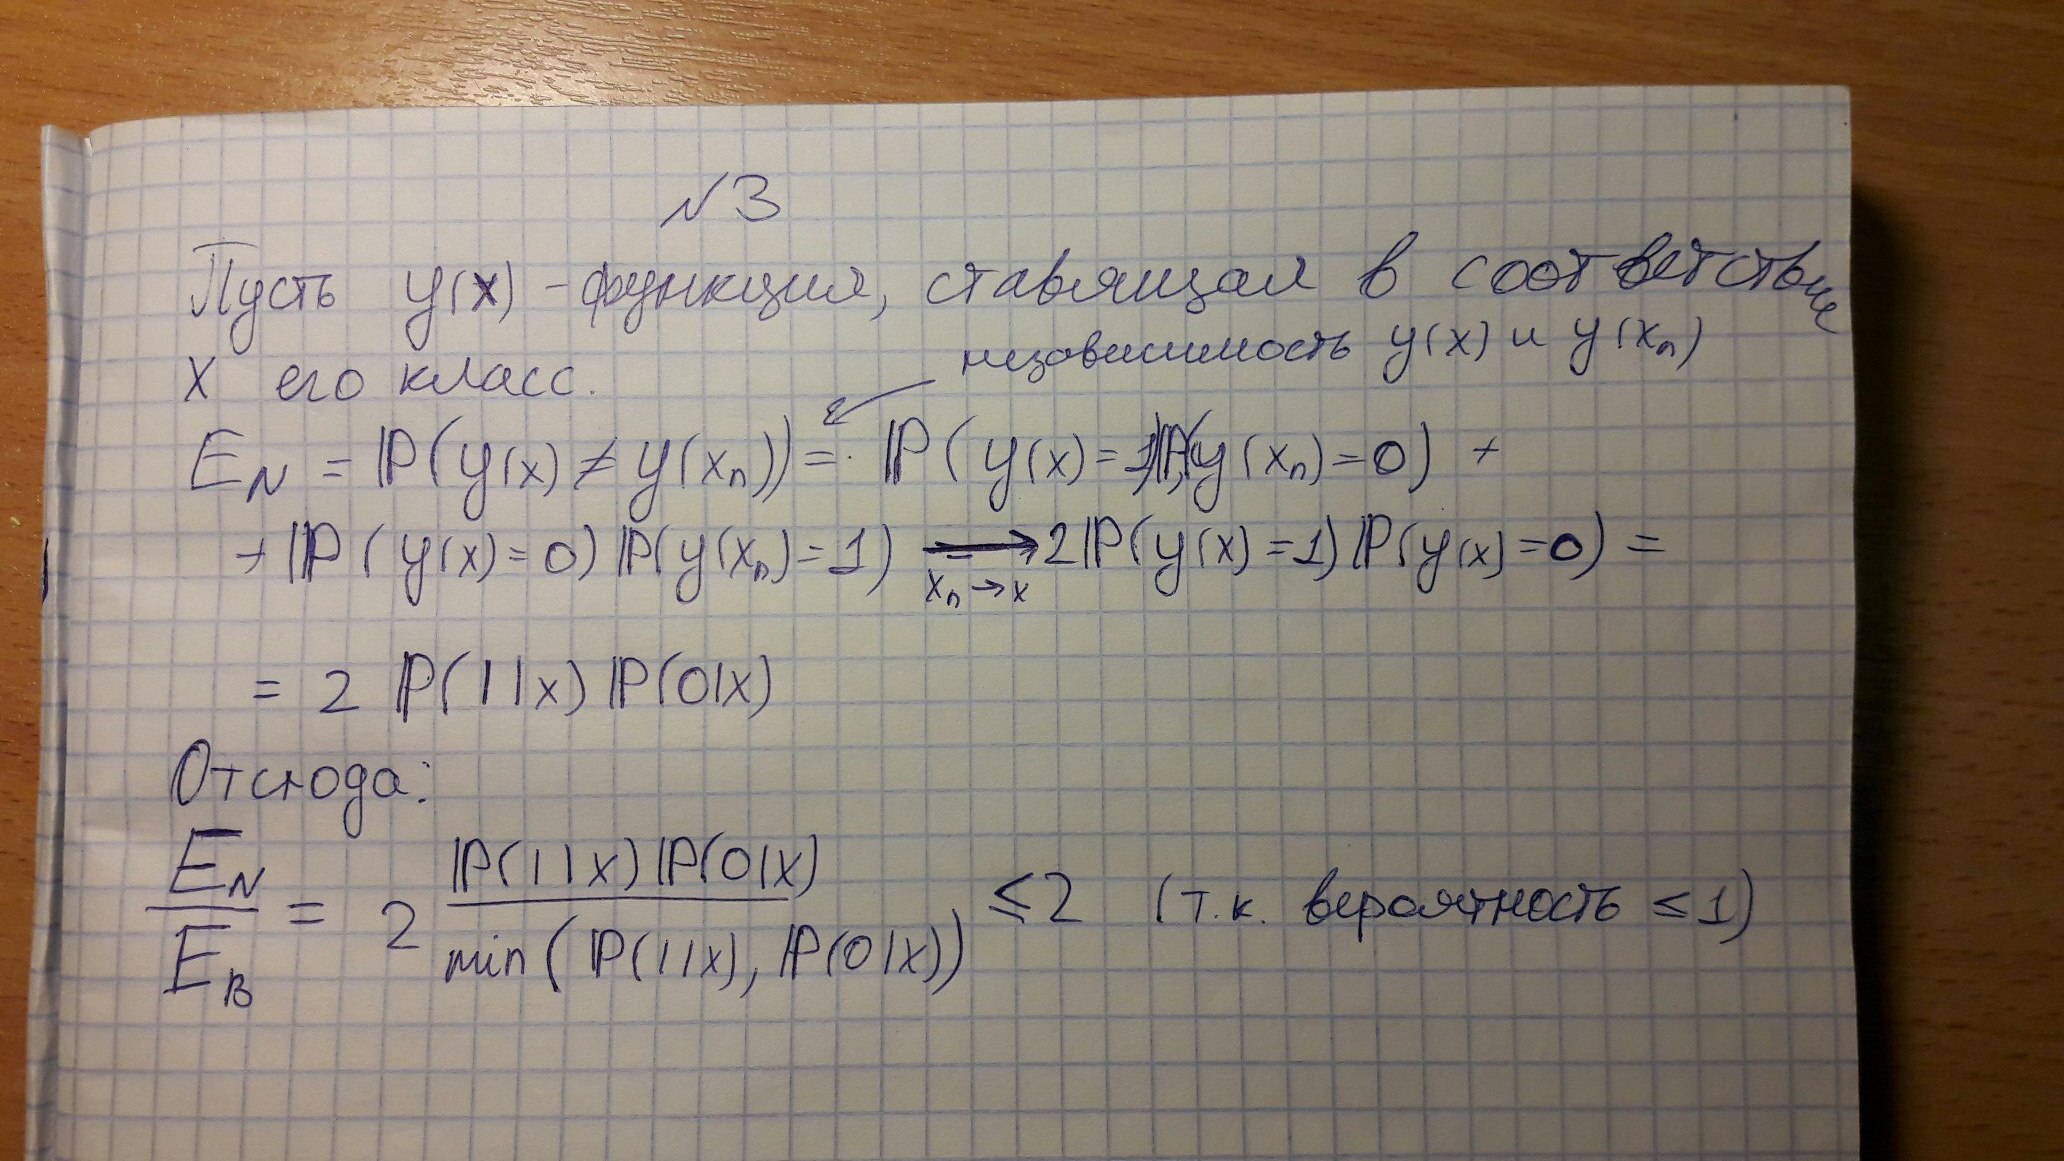 №3
Пусть y(x) - функция, ставящая в соответствие
x его класс.
независимость y(x) и y(xₙ)
E_N = ℙ(y(x) ≠ y(xₙ)) = ℙ(y(x)=1)ℙ(y(xₙ)=0) +
+ ℙ(y(x)=0)ℙ(y(xₙ)=1) ⟶ 2ℙ(y(x)=1)ℙ(y(x)=0) =
xₙ→x
= 2 ℙ(1|x)ℙ(0|x)
Отсюда:
E_N / E_B = 2 ℙ(1|x)ℙ(0|x) / min(ℙ(1|x), ℙ(0|x)) ≤ 2 (т.к. вероятность ≤ 1)